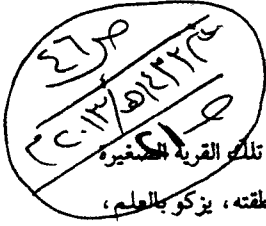 ص ٤٦
١٤٣٢هـ/٢٠١٣م
ص ٢١
تلك القرية الصغيرة
طقته، يزكو بالعلم،